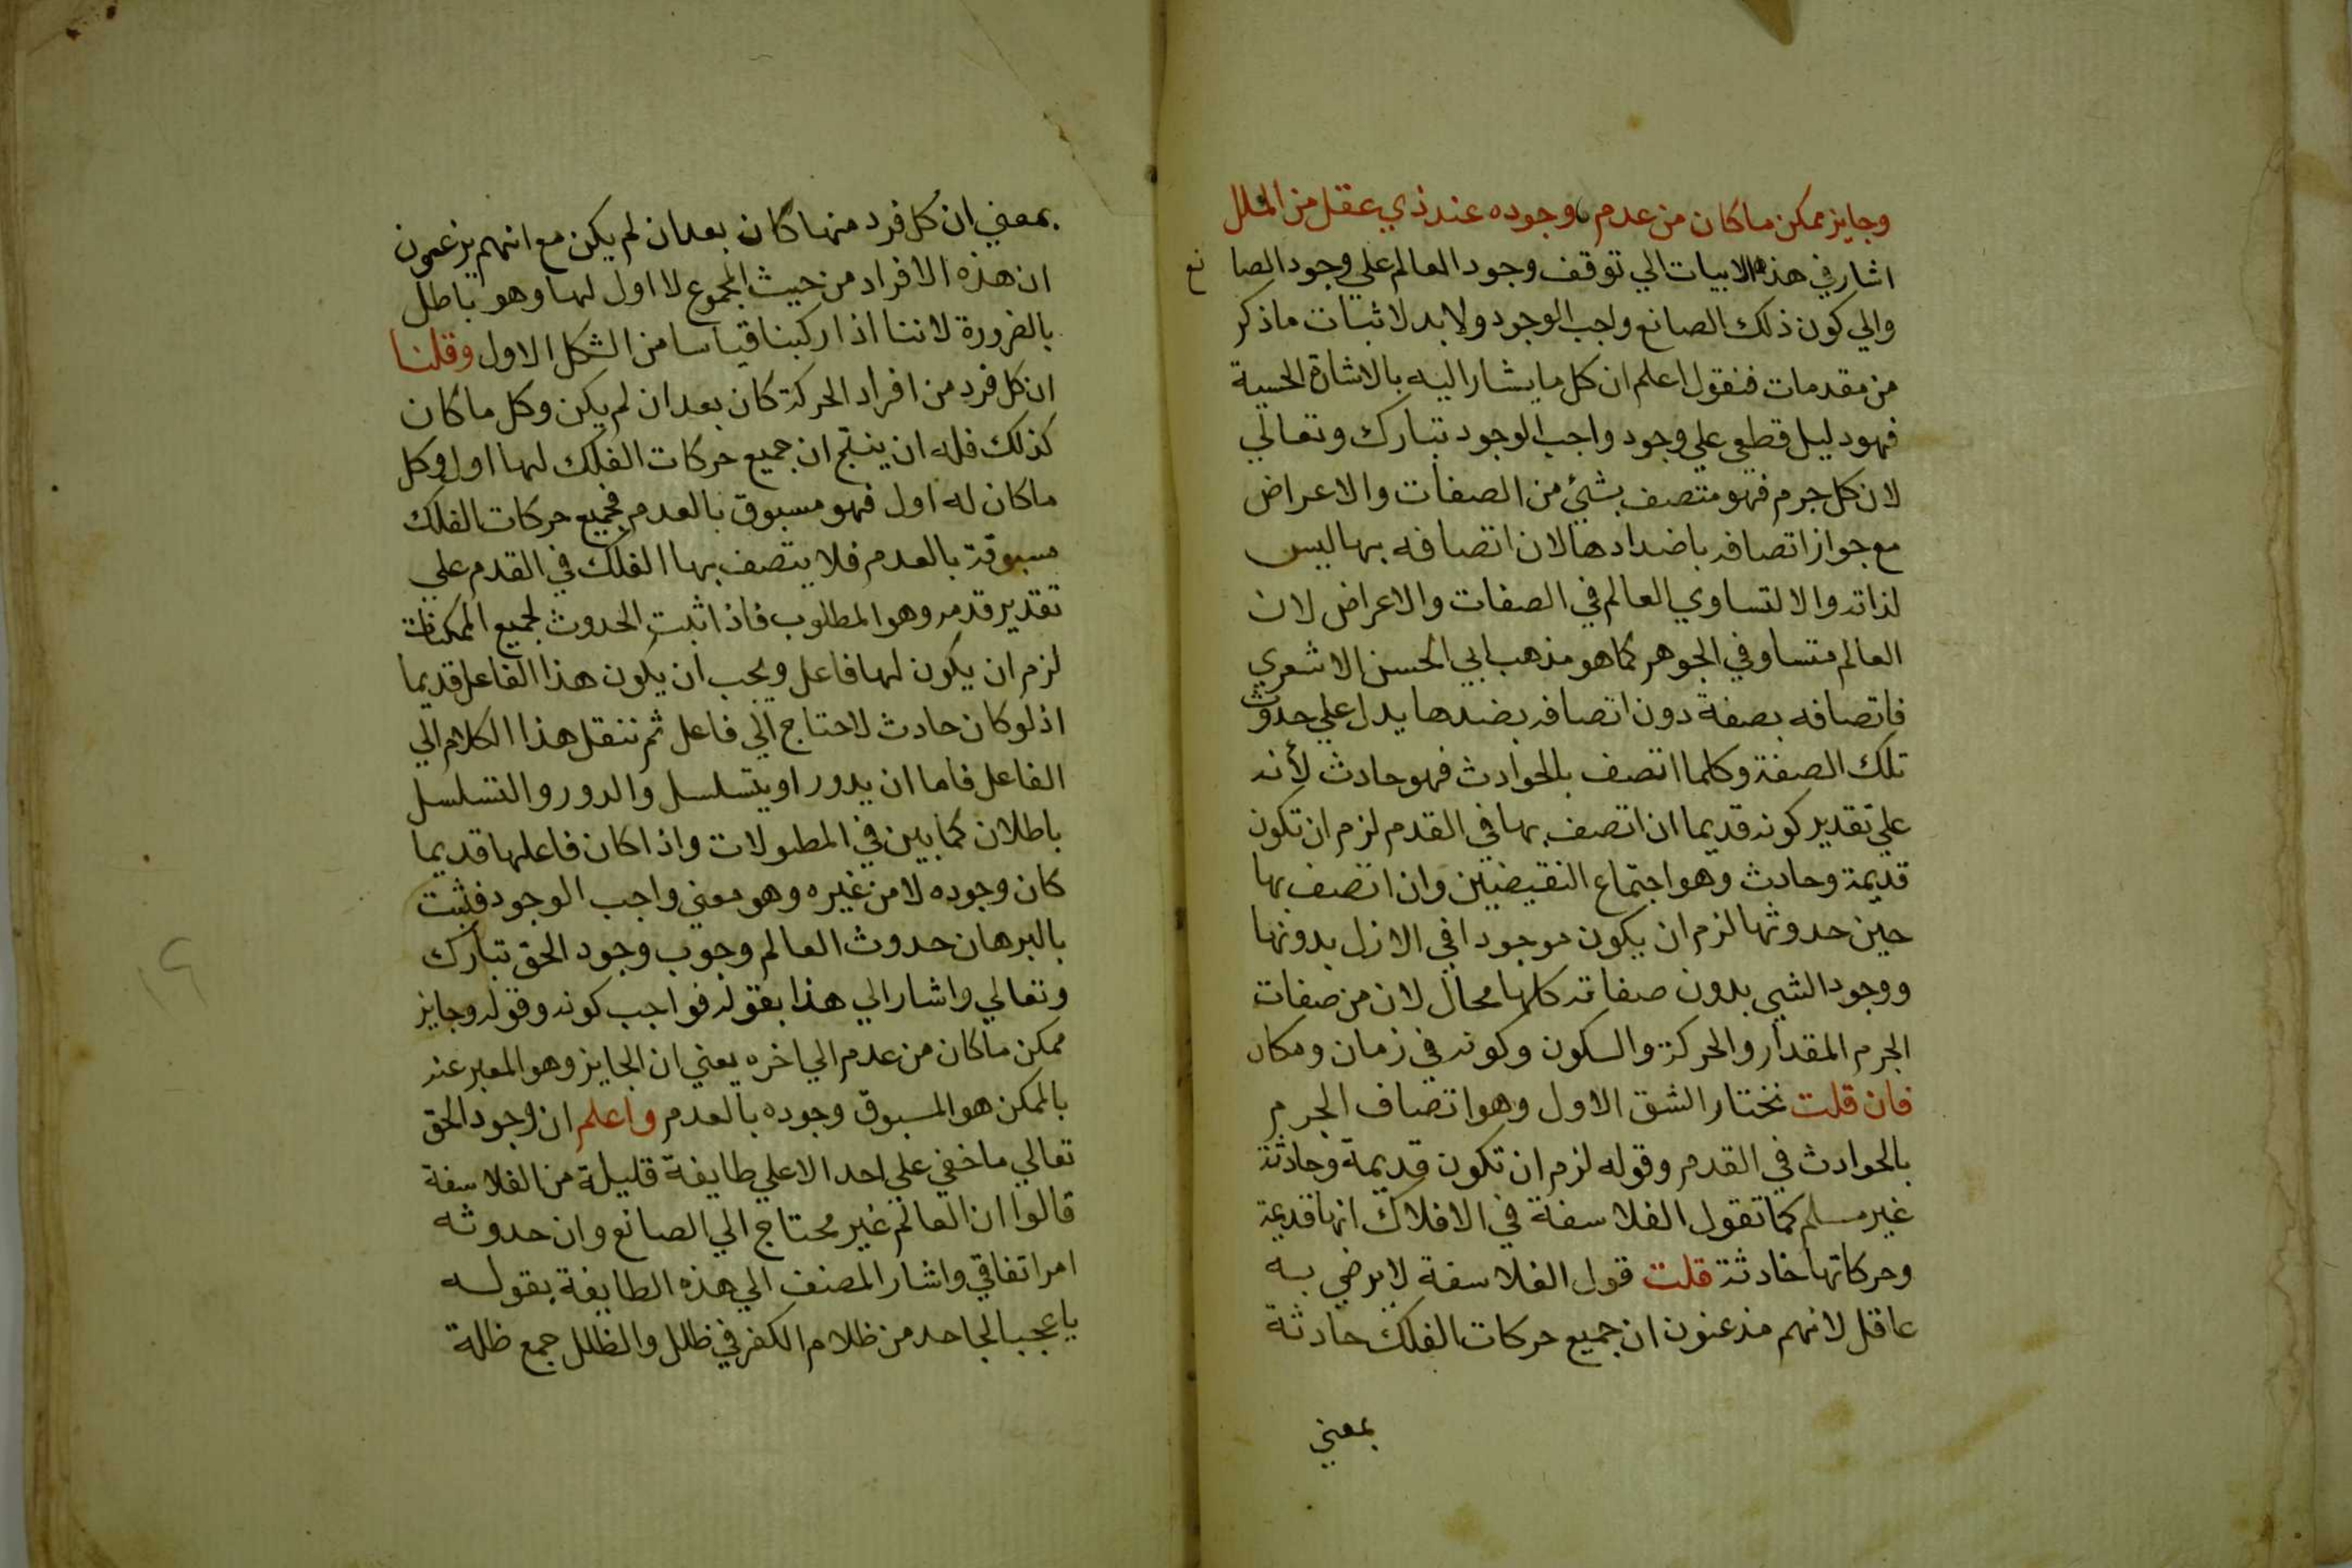 وجايز ممكن ما كان من عدم وجوده عند ذي عقل من الملل
اشار في هذه الابيات الي توقف وجود العالم علي وجود الصانع
والي كون ذلك الصانع واجب الوجود ولابد لاثبات ما ذكر
من مقدمات فنقول اعلم ان كل ما يشار اليه بالاشارة الحسية
فهو دليل قطعي علي وجود واجب الوجود تبارك وتعالي
لان كل جرم فهو متصف بشيئ من الصفات والاعراض
مع جواز اتصافه باضدادها لان اتصافه بها ليس
لذاته والا لتساوي العالم في الصفات والاعراض لان
العالم متساو في الجوهر كما هو مذهب ابي الحسن الاشعري
فاتصافه بصفة دون اتصافه بضدها يدل علي حدوث
تلك الصفة وكلما اتصف بالحوادث فهو حادث لأنه
علي تقدير كونه قديما ان اتصف بها في القدم لزم ان تكون
قديمة وحادث وهو اجتماع النقيضين وان اتصف بها
حين حدوثها لزم ان يكون موجودا في الازل بدونها
ووجود الشيي بدون صفاته كلها محال لان من صفات
الجرم المقدار والحركة والسكون وكونه في زمان ومكان
فان قلت نختار الشق الاول وهو اتصاف الجرم
بالحوادث في القدم وقوله لزم ان تكون قديمة وحادثة
غير مسلم كما تقول الفلاسفة في الافلاك انها قديمة
وحركاتها حادثة قلت قول الفلاسفة لا يرضي به
عاقل لانهم مذعنون ان جميع حركات الفلك حادثة
بمعني
بمعني ان كل فرد منها كان بعد ان لم يكن مع انهم يزعمون
ان هذه الافراد من حيث المجموع لا اول لها وهو باطل
بالضرورة لاننا اذا ركبنا قياسا من الشكل الاول وقلنا
ان كل فرد من افراد الحركة كان بعد ان لم يكن وكل ما كان
كذلك فله ان ينتج ان جميع حركات الفلك لها اول وكل
ما كان له اول فهو مسبوق بالعدم فجميع حركات الفلك
مسبوقة بالعدم فلا يتصف بها الفلك في القدم علي
تقدير قدمه وهو المطلوب فاذا ثبت الحدوث لجميع الممكنات
لزم ان يكون لها فاعل ويجب ان يكون هذا الفاعل قديما
اذ لو كان حادث لاحتاج الي فاعل ثم ننقل هذا الكلام الي
الفاعل فاما ان يدور او يتسلسل والدور والتسلسل
باطلان كما بين في المطولات واذا كان فاعلها قديما
كان وجوده لا من غيره وهو معني واجب الوجود فثبت
بالبرهان حدوث العالم وجوب وجود الحق تبارك
وتعالي واشار الي هذا بقوله فواجب كونه وقوله وجايز
ممكن ما كان من عدم الي اخره يعني ان الجايز وهو المعبر عنه
بالممكن هو المسبوق وجوده بالعدم واعلم ان وجود الحق
تعالي ما خفي علي احد الا علي طايفة قليلة من الفلاسفة
قالوا ان العالم غير محتاج الي الصانع وان حدوثه
امر اتفاقي واشار المصنف الي هذه الطايفة بقوله
يا عجبا لجاحد من ظلام الكفر في ظلل والظلل جمع ظلة